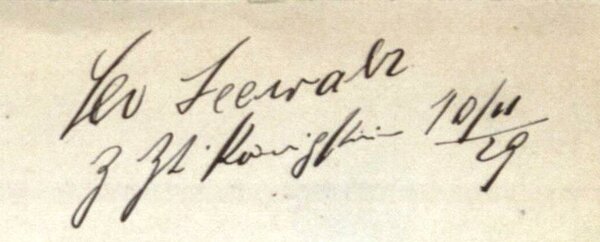 Leo Seewald
z Zt. Königstein 10/11 29